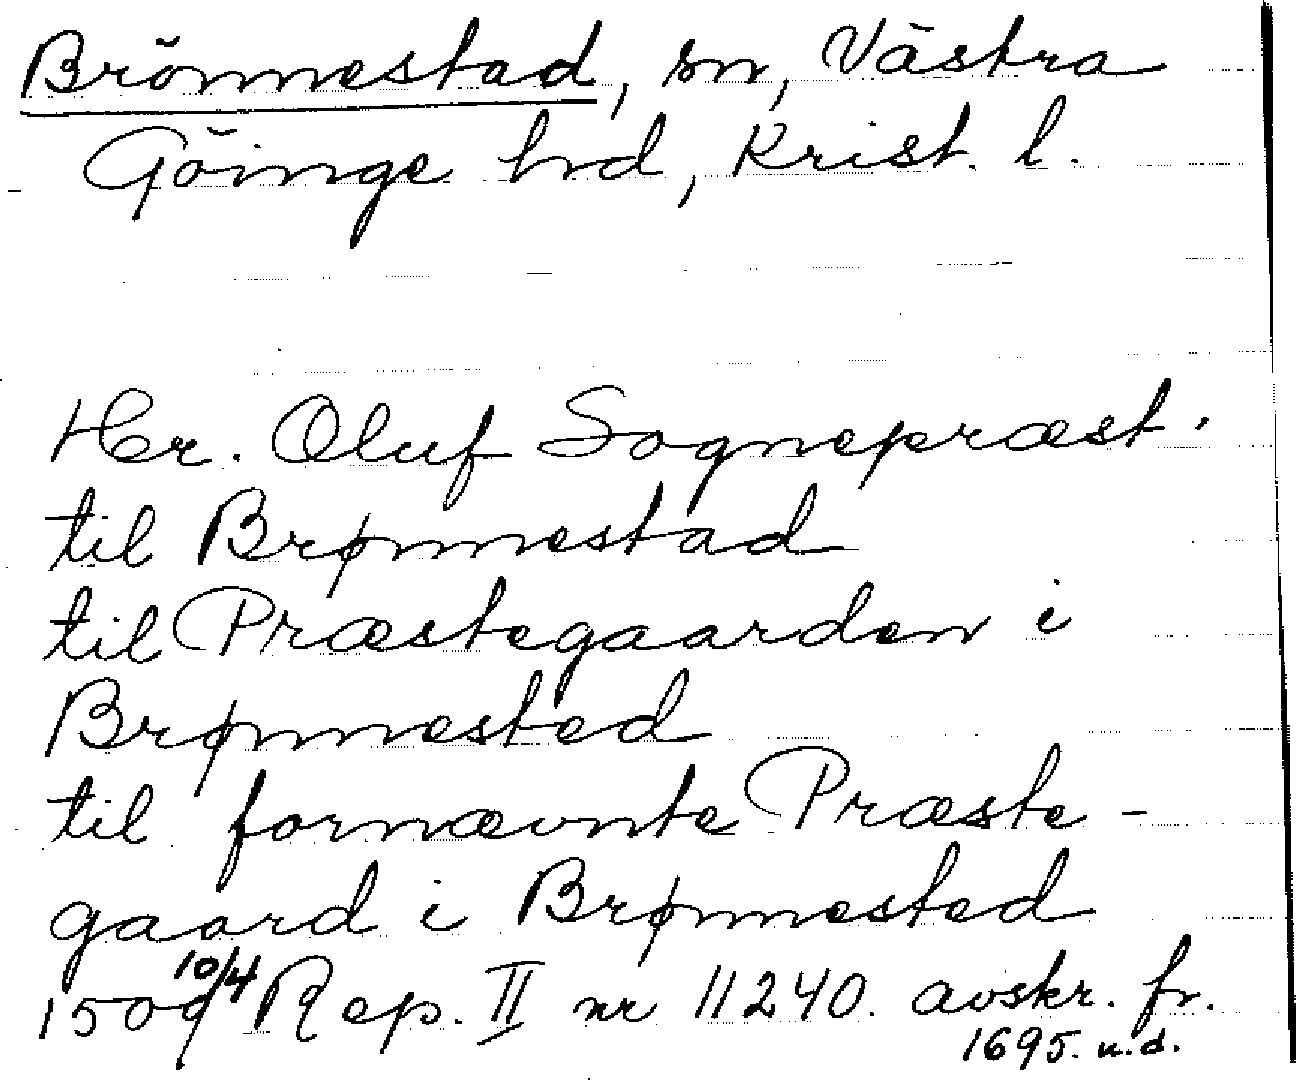 Brönnestad, sn, Västra
Göinge hd, Krist. l.
Her. Oluf Sognepræst
til Brønnestad
til Præstegaarden i
Brønnested
til fornævnte Præste-
gaard i Brønnested
1509 10/4 Rep. II nr 11240. avskr. fr.
1695. n.d.